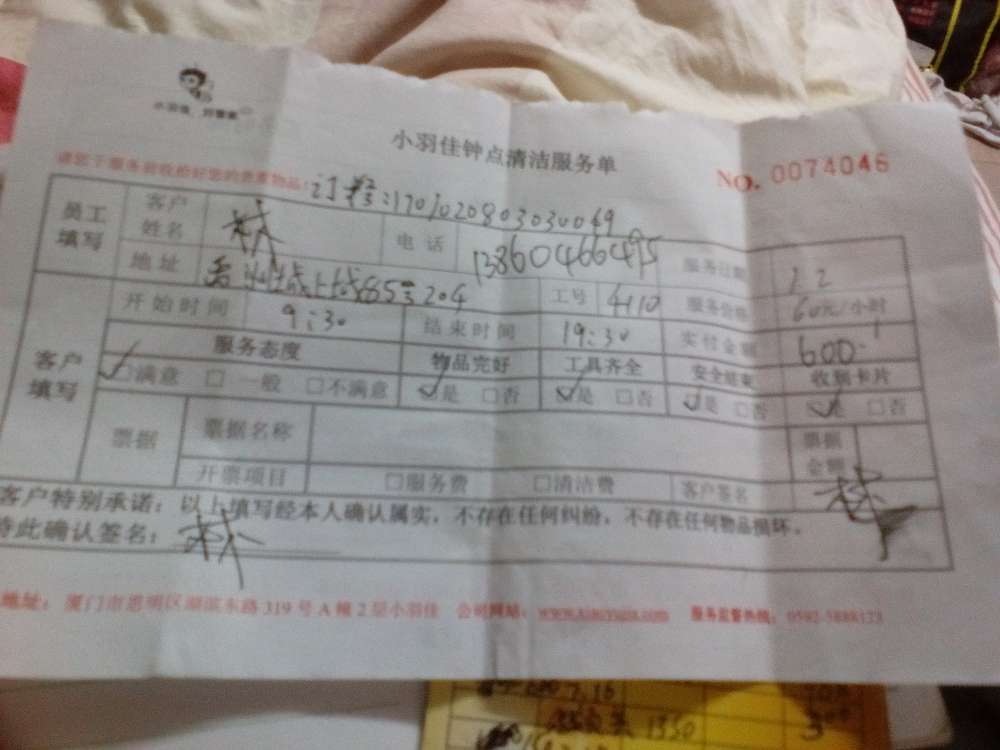 小羽佳 好管家
小羽佳钟点清洁服务单
NO. 0074046
请您于服务前收拾好您的贵重物品!
订单:1701020803030049
员工填写 客户姓名 林 电话 13860466495 服务日期 1.2
地址 204 工号 4110 服务价格 60元/小时
客户填写 开始时间 9:30 结束时间 19:30 实付金额 600
服务态度 物品完好 工具齐全 安全结束 收到卡片
☑满意 □一般 □不满意 ☑是 □否 ☑是 □否 ☑是 □否 ☑是 □否
票据 票据名称 票据金额
开票项目 □服务费 □清洁费 客户签名 林
客户特别承诺:以上填写经本人确认属实,不存在任何纠纷,不存在任何物品损坏。
特此确认签名:林
地址:厦门市思明区湖滨东路319号A幢2层小羽佳 公司网站:www.xiaoyujia.com 服务监督热线:
1350